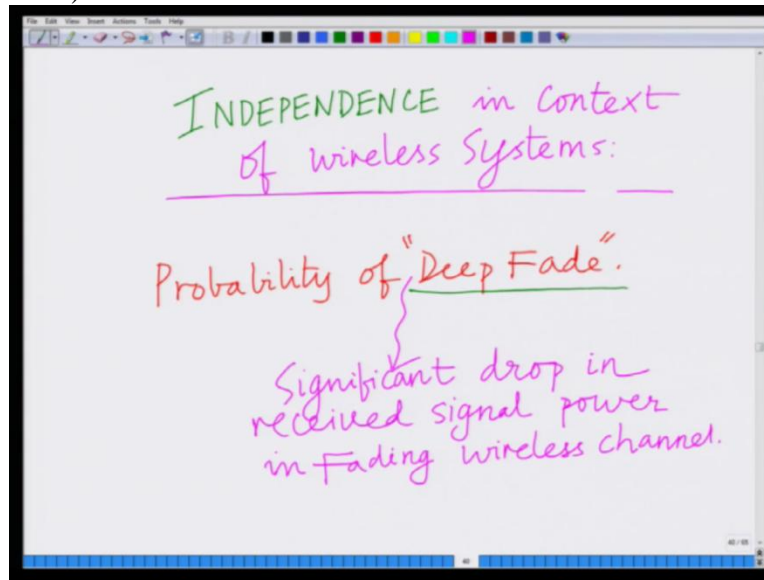 File Edit View Insert Actions Tools Help
INDEPENDENCE in Context
of wireless Systems:
Probability of "Deep Fade".
Significant drop in
received signal power
in Fading wireless channel.
40 / 65
40